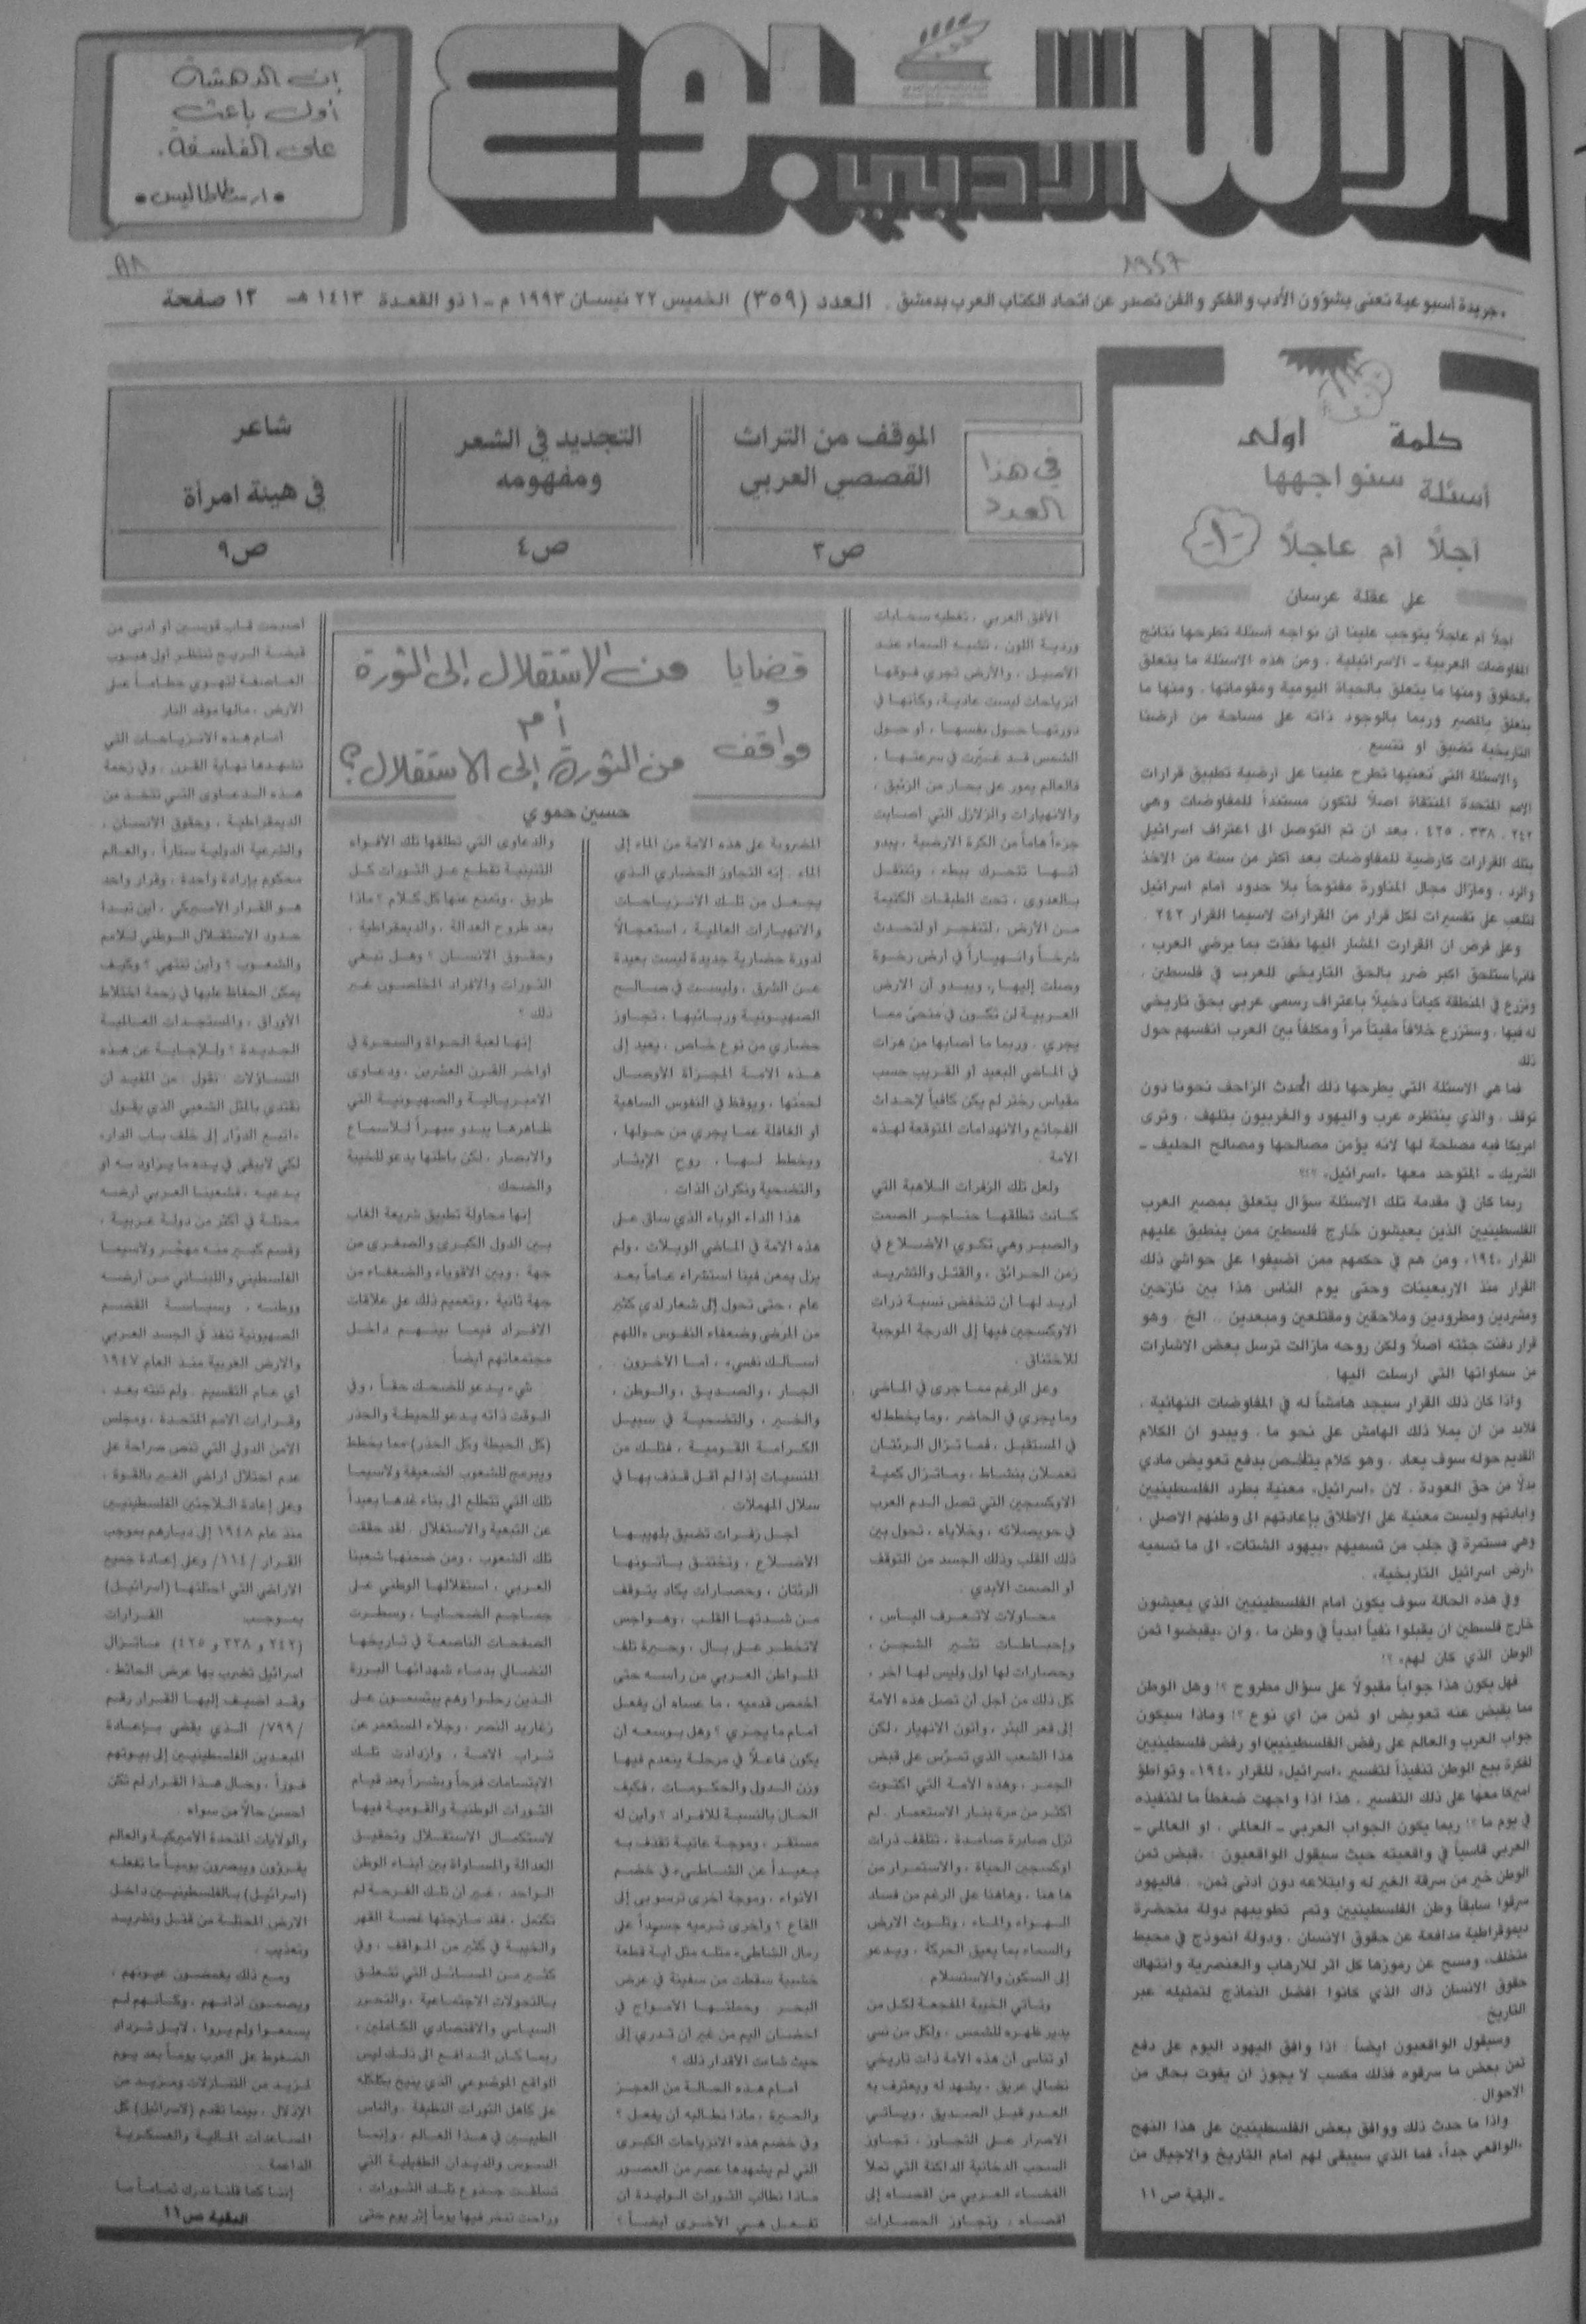 الأسبوع الأدبي
إن الدهشة
أول باعث
على الفلسفة.
• ارسطاطاليس •
٨٨
١٩٤٣
جريدة أسبوعية تعنى بشؤون الأدب والفكر والفن تصدر عن اتحاد الكتاب العرب بدمشق. العدد (٣٥٩) الخميس ٢٢ نيسان ١٩٩٣ م - ١ ذو القعدة ١٤١٣ هـ - ١٢ صفحة
في هذا
العدد
الموقف من التراث
القصصي العربي
ص٣
التجديد في الشعر
ومفهومه
ص٤
شاعر
في هيئة امرأة
ص٩
كلمة اولى
أسئلة سنواجهها
آجلاً أم عاجلاً -١-
علي عقلة عرسان
آجلاً ام عاجلاً يتوجب علينا ان نواجه أسئلة تطرحها نتائج
المفاوضات العربية - الاسرائيلية. ومن هذه الاسئلة ما يتعلق
بالحقوق ومنها ما يتعلق بالحياة اليومية ومقوماتها، ومنها ما
يتعلق بالمصير وربما بالوجود ذاته على مساحة من أرضنا
التاريخية تضيق او تتسع.
والاسئلة التي نعنيها تطرح علينا على أرضية تطبيق قرارات
الامم المتحدة المنتقاة اصلاً لتكون مستنداً للمفاوضات وهي
٢٤٢، ٣٣٨، ٤٢٥، بعد ان تم التوصل الى اعتراف اسرائيل
بتلك القرارات كأرضية للمفاوضات بعد أكثر من سنة من الاخذ
والرد. ومازال مجال المناورة مفتوحاً بلا حدود أمام اسرائيل
لتلعب على تفسيرات لكل قرار من القرارات لاسيما القرار ٢٤٢.
وعلى فرض ان القرارت المشار اليها نفذت بما يرضي العرب،
فانها ستلحق اكبر ضرر بالحق التاريخي للعرب في فلسطين،
وتزرع في المنطقة كياناً دخيلاً باعتراف رسمي عربي بحق تاريخي
له فيها، وستزرع خلافاً مقيتاً مراً ومكلفاً بين العرب انفسهم حول
ذلك
فما هي الاسئلة التي يطرحها ذلك الحدث الزاحف نحونا دون
توقف. والذي ينتظره عرب واليهود والغربيون بتلهف، وترى
امريكا فيه مصلحة لها لانه يؤمن مصالحها ومصالح الحليف -
الشريك - المتوحد معها «اسرائيل» ؟!؟
ربما كان في مقدمة تلك الاسئلة سؤال يتعلق بمصير العرب
الفلسطينيين الذين يعيشون خارج فلسطين ممن ينطبق عليهم
القرار «١٩٤» ومن هم في حكمهم ممن أضيفوا على حواشي ذلك
القرار منذ الاربعينات وحتى يوم الناس هذا بين نازحين
ومشردين ومطرودين وملاحقين ومقتلعين ومبعدين .. الخ. وهو
قرار دفنت جثته اصلاً ولكن روحه مازالت ترسل بعض الاشارات
من سماواتها التي ارسلت اليها.
واذا كان ذلك القرار سيجد هامشاً له في المفاوضات النهائية،
فلابد من ان يملأ ذلك الهامش على نحو ما، ويبدو ان الكلام
القديم حوله سوف يعاد. وهو كلام يتلخص بدفع تعويض مادي
بدلاً من حق العودة. لان «اسرائيل» معنية بطرد الفلسطينيين
وابادتهم وليست معنية على الاطلاق بإعادتهم الى وطنهم الاصلي،
وهي مستمرة في جلب من تسميهم «بيهود الشتات» الى ما تسميه
«أرض اسرائيل التاريخية».
وفي هذه الحالة سوف يكون امام الفلسطينيين الذي يعيشون
خارج فلسطين ان يقبلوا نفياً ابدياً في وطن ما، وان «يقبضوا ثمن
الوطن الذي كان لهم» ؟!
فهل يكون هذا جواباً مقبولاً على سؤال مطروح ؟! وهل الوطن
مما يقبض عنه تعويض او ثمن من أي نوع ؟! وماذا سيكون
جواب العرب والعالم على رفض الفلسطينيين او رفض فلسطينيين
لفكرة بيع الوطن تنفيذاً لتفسير «اسرائيل» للقرار «١٩٤» وتواطؤ
اميركا معها على ذلك التفسير. هذا اذا واجهت ضغطاً ما لتنفيذه
في يوم ما ؟! ربما يكون الجواب العربي - العالمي، او العالمي -
العربي قاسياً في واقعيته حيث سيقول الواقعيون: «قبض ثمن
الوطن خير من سرقة الغير له وابتلاعه دون أدنى ثمن». فاليهود
سرقوا سابقاً وطن الفلسطينيين وتم تطويبهم دولة متحضرة
ديموقراطية مدافعة عن حقوق الانسان، ودولة انموذج في محيط
متخلف، ومسح عن رموزها كل اثر للارهاب والعنصرية وانتهاك
حقوق الانسان ذاك الذي كانوا افضل النماذج لتمثيله عبر
التاريخ
وسيقول الواقعيون ايضاً: اذا وافق اليهود اليوم على دفع
ثمن بعض ما سرقوه فذلك مكسب لا يجوز ان يفوت بحال من
الاحوال.
واذا ما حدث ذلك ووافق بعض الفلسطينيين على هذا النهج
«الواقعي جداً» فما الذي سيبقى لهم امام التاريخ والاجيال من
- البقية ص ١١
قضايا
و
مواقف
من الاستقلال إلى الثورة
أم
من الثورة إلى الاستقلال؟
حسين حموي
الأفق العربي، تغطيه سحابات
وردية اللون، تشبه السماء عند
الأصيل، والأرض تجري فوقها
انزياحات ليست عادية، وكأنها في
دورتها حول نفسها، أو حول
الشمس قد غيّرت في سرعتها،
فالعالم يمور على بحار من الزئبق،
والانهيارات والزلازل التي أصابت
جزءاً هاماً من الكرة الارضية، يبدو
أنها تتحرك ببطء، وتنتقل
بالعدوى، تحت الطبقات الكتيمة
من الأرض، لتنفجر أو لتحدث
شرخاً وانهياراً في أرض رخوة
وصلت إليها، ويبدو أن الارض
العربية لن تكون في منحىً مما
يجري. وربما ما أصابها من هزات
في الماضي البعيد أو القريب حسب
مقياس رختر لم يكن كافياً لإحداث
الفجائع والانهدامات المتوقعة لهذه
الأمة.
ولعل تلك الزفرات اللاهبة التي
كانت تطلقها حناجر الصمت
والصبر وهي تكوي الاضلاع في
زمن الحرائق، والقتل والتشريد
أريد لها أن تنخفض نسبة ذرات
الاوكسجين فيها إلى الدرجة الموجبة
للاختناق.
وعلى الرغم مما جرى في الماضي
وما يجري في الحاضر، وما يخطط له
في المستقبل، فما تزال الرئتان
تعملان بنشاط، وماتزال كمية
الاوكسجين التي تصل الدم العرب
في حويصلاته، وخلاياه، تحول بين
ذلك القلب وذلك الجسد من التوقف
أو الصمت الأبدي.
محاولات لاتعرف اليأس،
وإحباطات تثير الشجن،
وحصارات لها أول وليس لها آخر،
كل ذلك من أجل أن تصل هذه الأمة
إلى قعر البئر، وأتون الانهيار، لكن
هذا الشعب الذي تمرّس على قبض
الجمر، وهذه الأمة التي اكتوت
أكثر من مرة بنار الاستعمار، لم
تزل صابرة صامدة، تتلقف ذرات
أوكسجين الحياة، والاستمرار من
هاهنا، وهاهنا على الرغم من فساد
الهواء والماء، وتلوث الارض
والسماء بما يعيق الحركة، ويدعو
إلى السكون والاستسلام.
وتأتي الخيبة المفجعة لكل من
يدير ظهره للشمس، ولكل من نسي
أو تناسى أن هذه الأمة ذات تاريخي
نضالي عريق، يشهد له ويعترف به
العدو قبل الصديق، ويأتي
الاصرار على التجاوز، تجاوز
السحب الدخانية الداكنة التي تملأ
الفضاء العربي من أقصاه إلى
أقصاه، وتجاوز الحصارات
المضروبة على هذه الامة من الماء إلى
الماء. إنه التجاوز الحضاري الذي
يجعل من تلك الانزياحات
والانهيارات العالمية، استعجالاً
لدورة حضارية جديدة ليست بعيدة
عن الشرق، وليست في صالح
الصهيونية وربائبها، تجاوز
حضاري من نوع خاص، يعيد إلى
هذه الامة المجزأة الاوصال
لحمتها، ويوقظ في النفوس الساهية
أو الغافلة عما يجري من حولها،
ويخطط لها، روح الإيثار
والتضحية ونكران الذات.
هذا الداء الوباء الذي ساق على
هذه الامة في الماضي الويلات، ولم
يزل يمعن فينا استشراء عاماً بعد
عام، حتى تحول إلى شعار لدى كثير
من المرضى وضعفاء النفوس «اللهم
أسألك نفسي»، أما الآخرون،
الجار، والصديق، والوطن،
والخير، والتضحية في سبيل
الكرامة القومية، فتلك من
المنسيات إذا لم أقل قذف بها في
سلال المهملات.
أجل زفرات تضيق بلهيبها
الاضلاع، وتختنق بأتونها
الرئتان، وحصارات يكاد يتوقف
من شدتها القلب، وهواجس
لاتخطر على بال، وحيرة تلف
المواطن العربي من رأسه حتى
أخمص قدميه، ما عساه أن يفعل
أمام ما يجري؟ وهل بوسعه أن
يكون فاعلاً في مرحلة ينعدم فيها
وزن الدول والحكومات، فكيف
الحال بالنسبة للافراد؟ وأين له
مستقر، وموجة عاتية تقذف به
بعيداً عن الشاطىء في خضم
الأنواء، وموجة أخرى ترسو بى إلى
القاع؟ وأخرى ترميه جسداً على
رمال الشاطىء مثله مثل أية قطعة
خشبية سقطت من سفينة في عرض
البحر. وحملتها الأمواج في
أحضان اليم من غير أن تدري إلى
حيث شاءت الأقدار ذلك؟
أمام هذه الحالة من العجز
والحيرة، ماذا نطالبه أن يفعل؟
وفي خضم هذه الانزياحات الكبرى
التي لم يشهدها عصر من العصور
ماذا نطالب الثورات الوليدة أن
تفعل هي الأخرى أيضاً؟
والدعاوى التي تطلقها تلك الافواه
التنينية تقطع على الثورات كل
طريق، وتمنع عنها كل كلام؟ ماذا
بعد طروح العدالة، والديمقراطية،
وحقوق الانسان؟ وهل تبغي
الثورات والافراد المخلصون غير
ذلك؟
إنها لعبة الحواة والسحرة في
أواخر القرن العشرين، ودعاوى
الامبريالية والصهيونية التي
ظاهرها يبدو مبهراً للاسماع
والابصار، لكن باطنها يدعو للخيبة
والضحك.
إنها محاولة تطبيق شريعة الغاب
بين الدول الكبرى والصغرى من
جهة، وبين الاقوياء والضعفاء من
جهة ثانية، وتعميم ذلك على علاقات
الافراد فيما بينهم داخل
مجتمعاتهم أيضاً.
شيء يدعو للضحك حقاً، وفي
الوقت ذاته يدعو للحيطة والحذر
(كل الحيطة وكل الحذر) مما يخطط
ويبرمج للشعوب الضعيفة ولاسيما
تلك التي تتطلع الى بناء غدها بعيداً
عن التبعية والاستغلال. لقد حققت
تلك الشعوب، ومن ضمنها شعبنا
العربي، استقلالها الوطني على
جماجم الضحايا، وسطرت
الصفحات الناصعة في تاريخها
النضالي بدماء شهدائها البررة
الذين رحلوا وهم يبتسمون على
زغاريد النصر، وجلاء المستعمر عن
تراب الامة، وازدادت تلك
الابتسامات فرحاً وبشراً بعد قيام
الثورات الوطنية والقومية فيها
لاستكمال الاستقلال وتحقيق
العدالة والمساواة بين أبناء الوطن
الواحد، غير أن تلك الفرحة لم
تكتمل، فقد مازجتها غصة القهر
والخيبة في كثير من المواقف، وفي
كثير من المسائل التي تتعلق
بالتحولات الاجتماعية، والتحرر
السياسي والاقتصادي الكاملين،
ربما كان الدافع الى ذلك ليس
الواقع الموضوعي الذي ينيخ بكلكله
على كاهل الثورات النظيفة. والناس
الطيبين في هذا العالم، وإنما
السوس والديدان الطفيلية التي
تسلقت جذوع تلك الثورات،
وراحت تنخر فيها يوماً إثر يوم حتى
أصبحت قاب قوسين أو أدنى من
قبضة الريح تنتظر أول هبوب
العاصفة لتهوي حطاماً على
الارض، مآلها موقد النار.
أمام هذه الانزياحات التي
تشهدها نهاية القرن. وفي زحمة
هذه الدعاوى التي تتخذ من
الديمقراطية، وحقوق الانسان،
والشرعية الدولية ستاراً، والعالم
محكوم بإرادة واحدة، وقرار واحد
هو القرار الأميركي، أين تبدأ
حدود الاستقلال الوطني للامم
والشعوب؟ وأين تنتهي؟ وكيف
يمكن الحفاظ عليها في زحمة اختلاط
الأوراق، والمستجدات العالمية
الجديدة؟ وللإجابة عن هذه
التساؤلات نقول: من المفيد أن
نقتدي بالمثل الشعبي الذي يقول
«اتبع الدوّار إلى خلف باب الدار»
لكي لايبقى في يده ما يزاود به أو
يدعيه، فشعبنا العربي أرضه
محتلة في أكثر من دولة عربية،
وقسم كبير منه مهجّر ولاسيما
الفلسطيني واللبناني من أرضه
ووطنه، وسياسة القضم
الصهيونية تنفذ في الجسد العربي
والارض العربية منذ العام ١٩٤٧
أي عام التقسيم، ولم تنته بعد،
وقرارات الامم المتحدة، ومجلس
الأمن الدولي التي تنص صراحة على
عدم احتلال أراضي الغير بالقوة،
وعلى إعادة اللاجئين الفلسطينيين
منذ عام ١٩٤٨ إلى ديارهم بموجب
القرار /١١٤/ وعلى إعادة جميع
الاراضي التي احتلتها (اسرائيل)
بموجب القرارات
(٢٤٢ و ٣٣٨ و ٤٢٥) ماتزال
اسرائيل تضرب بها عرض الحائط،
وقد أضيف إليها القرار رقم
/٧٩٩/ الذي يقضي بإعادة
المبعدين الفلسطينيين إلى بيوتهم
فوراً، وحال هذا القرار لم تكن
أحسن حالاً من سواه
والولايات المتحدة الأميركية والعالم
يقرؤون ويبصرون يومياً ما تفعله
(اسرائيل) بالفلسطينيين داخل
الارض المحتلة من قتل وتشريد
وتعذيب.
ومع ذلك يغمضون عيونهم،
ويصمون آذانهم، وكأنهم لم
يسمعوا ولم يروا، لابل تزداد
الضغوط على العرب يوماً بعد يوم
لمزيد من التنازلات ومزيد من
الإذلال، بينما تقدم (لاسرائيل) كل
المساعدات المالية والعسكرية
الداعمة.
إننا كما قلنا ندرك تماماً ما
البقية ص ١١